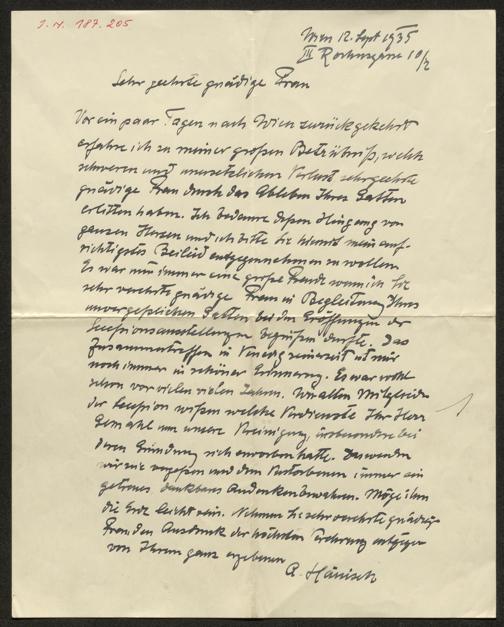 J. N. 187.205
Wien 12. Sept 1935
III Rochusgasse 10/2
Sehr geehrte gnädige Frau
Vor ein paar Tagen nach Wien zurückgekehrt
erfahre ich zu meiner großen Betrübniß, welch
schweren und unersetzlichen Verlust sehr geehrte
gnädige Frau durch das Ableben Ihres Gatten
erlitten haben. Ich bedaure dessen Hingang von
ganzen Herzen und ich bitte Sie hiemit mein auf-
richtigstes Beileid entgegennehmen zu wollen.
Es war mir immer eine große Freude wenn ich Sie
sehr verehrte gnädige Frau in Begleitung Ihres
unvergeßlichen Gatten bei den Eröffnungen der
Secessionsausstellungen begrüßen durfte. Das
Zusammentreffen in Venedig seinerzeit ist mir
noch immer in schöner Erinnerung. Es war wohl
schon vor vielen vielen Jahren. Wir alten Mitglieder
der Secession wißen welche Verdienste Ihr Herr
Gemahl um unsere Vereinigung, insbesondere bei
deren Gründung sich erworben hatte. Das werden
wir nie vergeßen und dem Verstorbenen immer ein
getreues dankbares Andenken bewahren. Möge ihm
die Erde leicht sein. Nehmen Sie sehr verehrte gnädige
Frau den Ausdruck der höchsten Verehrung entgegen
von Ihrem ganz ergebenen
A. Hänisch